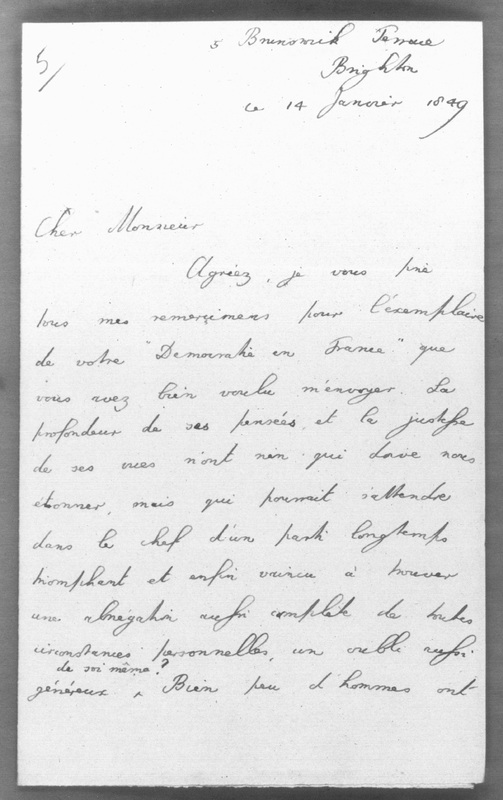 5/
5 Brunswick Terrace
Brighton
ce 14 Janvier 1849
Cher Monsieur
Agréez, je vous prie
tous mes remercimens pour l'exemplaire
de votre "Democratie en France" que
vous avez bien voulu m'envoyer. La
profondeur de ses pensées, et la justesse
de ses vues n'ont rien qui doive nous
étonner, mais qui pourrait s'attendre
dans le chef d'un parti longtemps
triomphant et enfin vaincu à trouver
une abnégation aussi complète de toutes
circonstances personnelles, un oubli aussi
de soi même?
généreux ^ Bien peu d'hommes ont